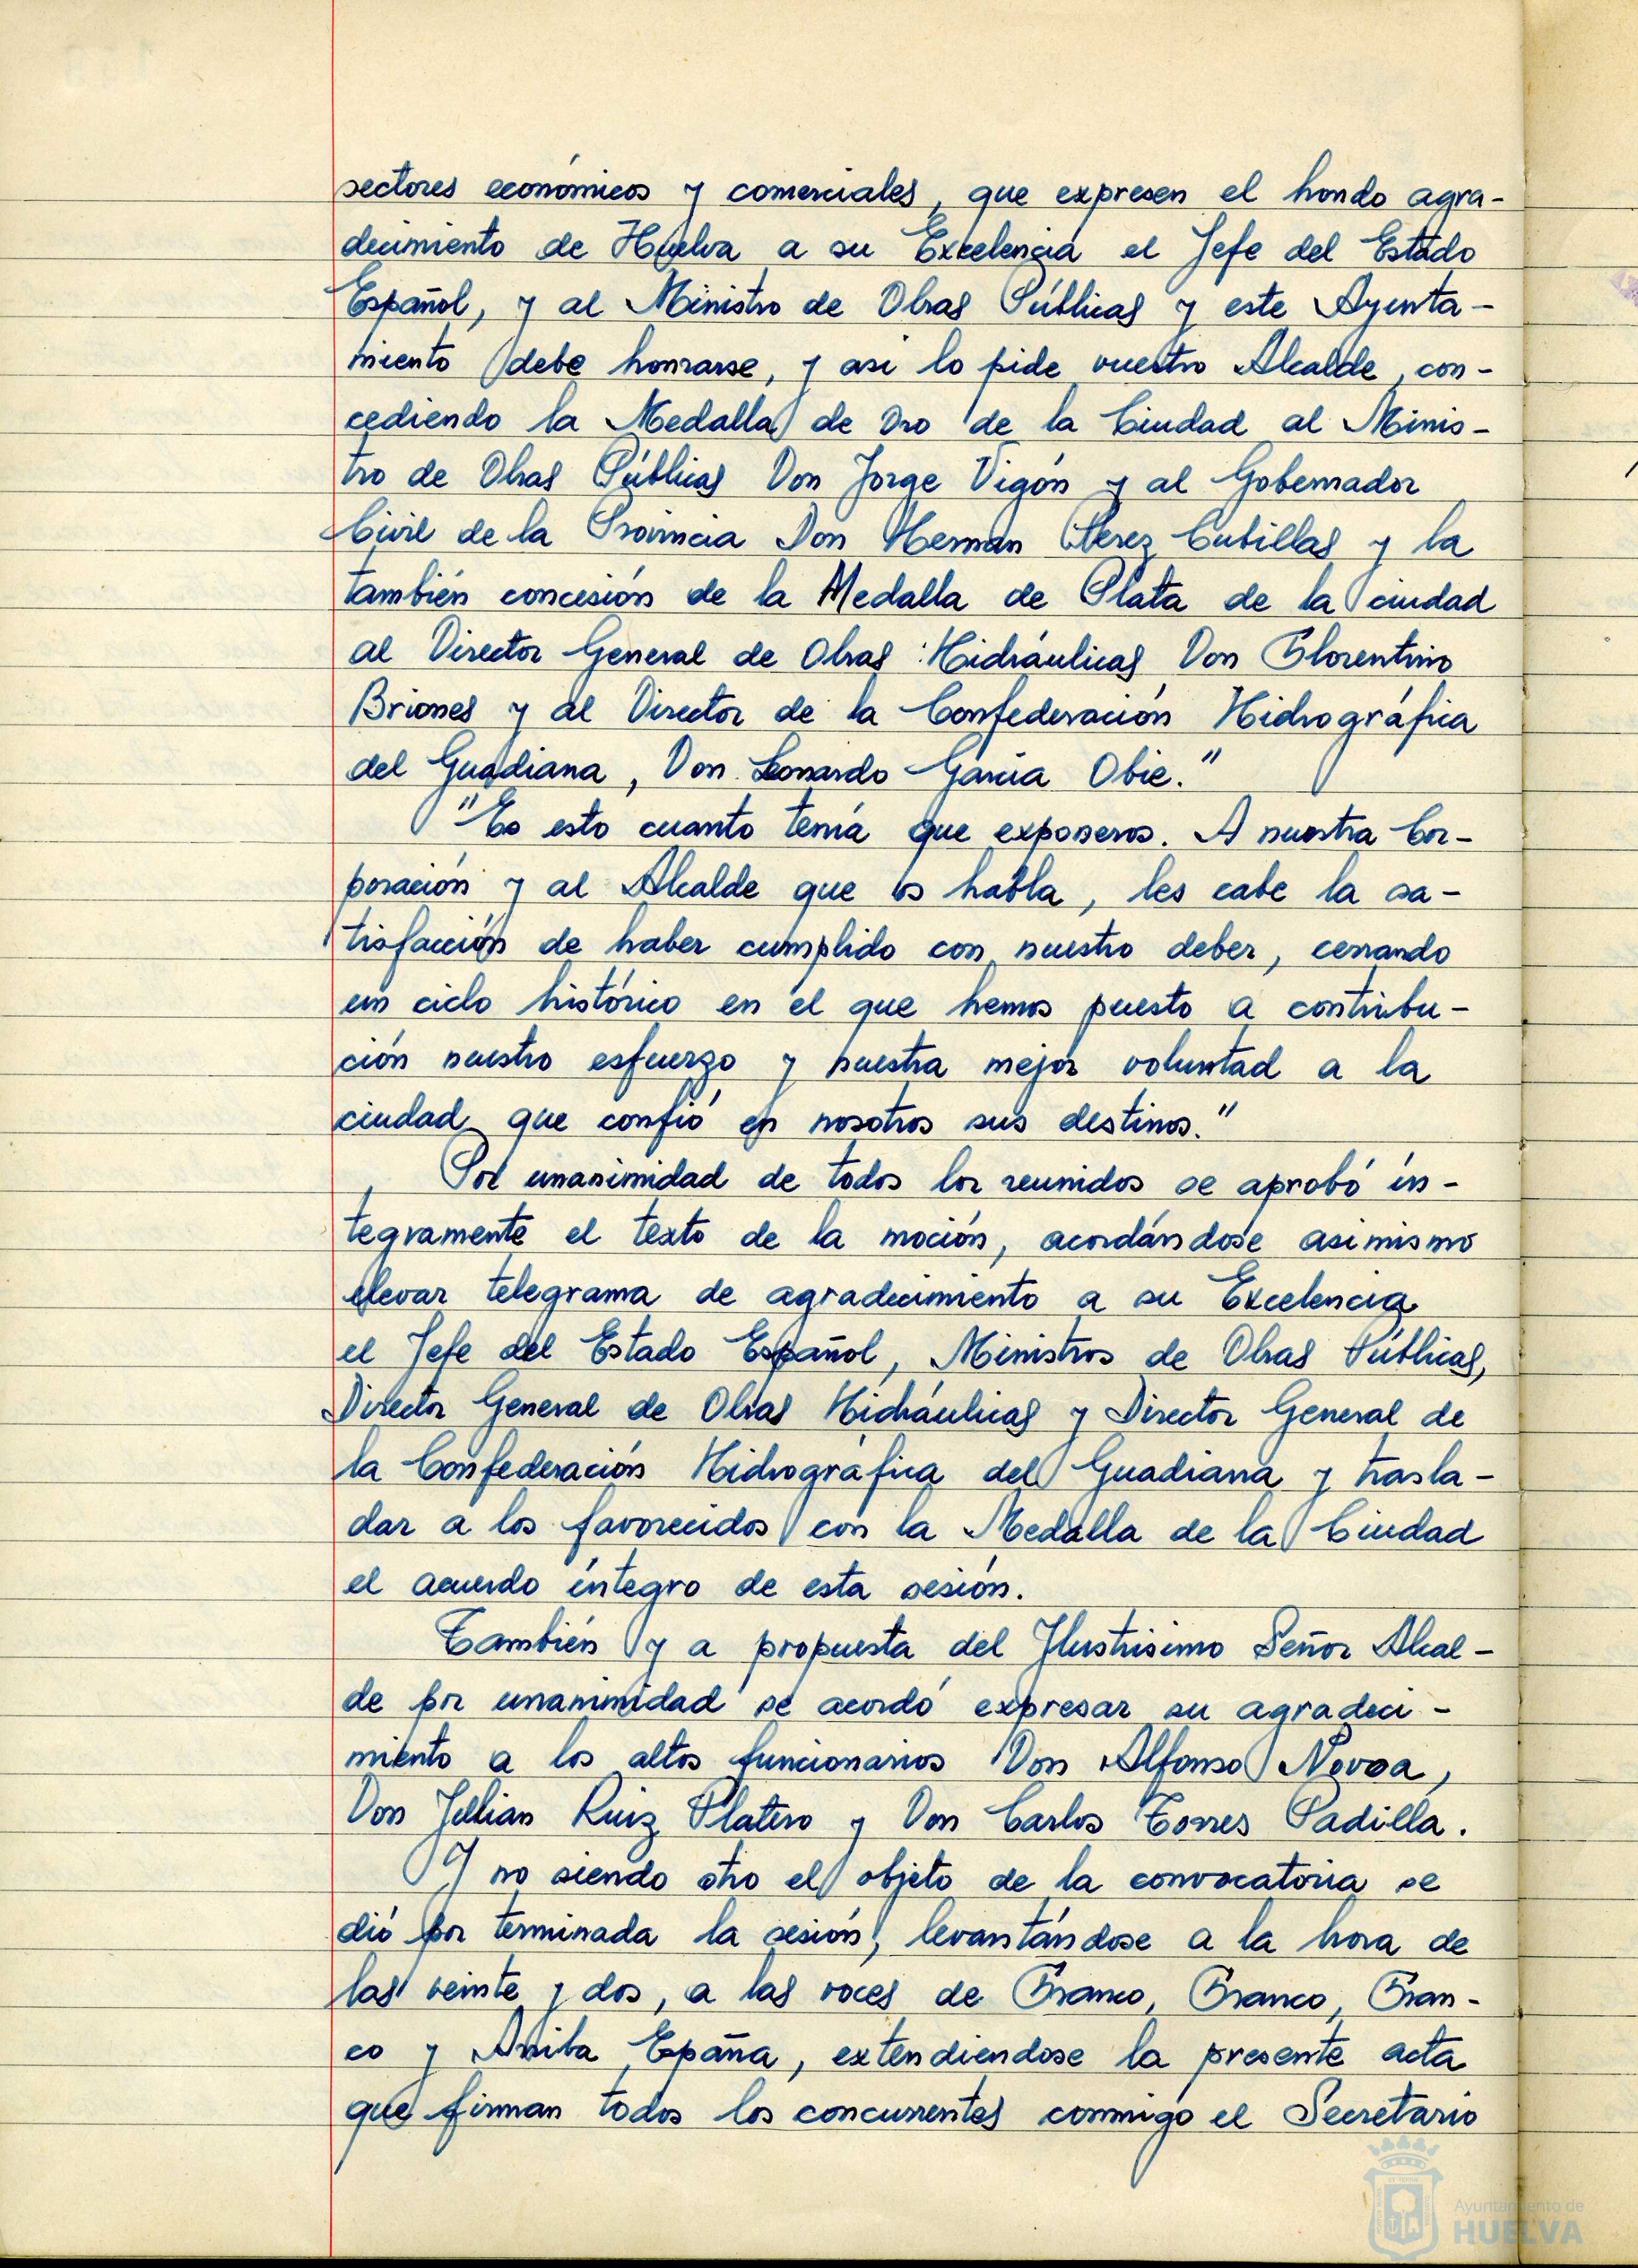 sectores económicos y comerciales, que expresen el hondo agra-
decimiento de Huelva a su Excelencia el Jefe del Estado
Español, y al Ministro de Obras Públicas y este Ayunta-
miento debe honrarse, y asi lo pide vuestro Alcalde, con-
cediendo la Medalla de Oro de la Ciudad al Minis-
tro de Obras Públicas Don Jorge Vigón y al Gobernador
Civil de la Provincia Don Hernán Perez Cubillas y la
también concesión de la Medalla de Plata de la ciudad
al Director General de Obras Hidráulicas Don Florentino
Briones y al Director de la Confederación Hidrográfica
del Guadiana, Don Leonardo Garcia Obie."
"Es esto cuanto tenía que exponeros. A nuestra Cor-
poración y al Alcalde que os habla, les cabe la sa-
tisfacción de haber cumplido con nuestro deber, cerrando
un ciclo histórico en el que hemos puesto a contribu-
ción nuestro esfuerzo y nuestra mejor voluntad a la
ciudad que confió en nosotros sus destinos."
Por unanimidad de todos los reunidos se aprobó ín-
tegramente el texto de la moción, acordándose asimismo
elevar telegrama de agradecimiento a su Excelencia
el Jefe del Estado Español, Ministros de Obras Públicas,
Director General de Obras Hidráulicas y Director General de
la Confederación Hidrográfica del Guadiana y trasla-
dar a los favorecidos con la Medalla de la Ciudad
el acuerdo íntegro de esta sesión.
También y a propuesta del Ilustrisimo Señor Alcal-
de por unanimidad se acordó expresar su agradeci-
miento a los altos funcionarios Don Alfonso Novoa,
Don Julian Ruiz Platero y Don Carlos Torres Padilla.
Y no siendo otro el objeto de la convocatoria se
dió por terminada la sesión, levantándose a la hora de
las veinte y dos, a las voces de Franco, Franco, Fran-
co y Arriba España, extendiendose la presente acta
que firman todos los concurrentes conmigo el Secretario
Ayuntamiento de
HUELVA